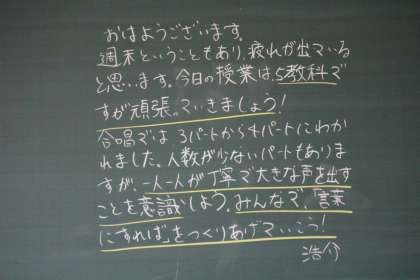 おはようございます。
週末ということもあり、疲れが出ている
と思います。今日の授業は、5教科で
すが頑張っていきましょう!
合唱では、3パートから4パートにわか
れました。人数が少ないパートもありま
すが、一人一人が丁寧で大きな声を出す
ことを意識しよう。みんなで、「言葉
にすれば」をつくりあげていこう!
浩介